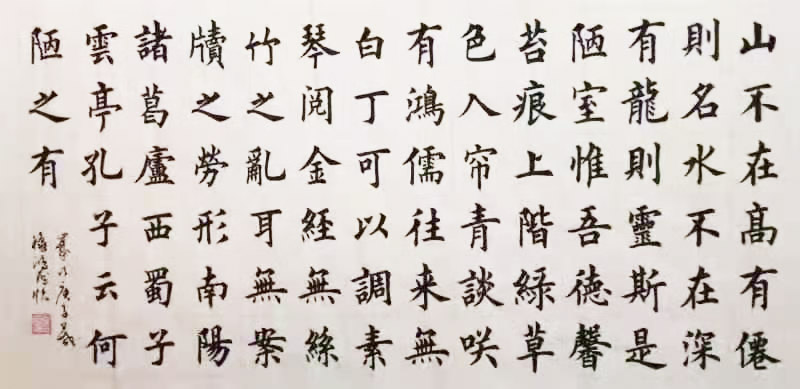 山不在高有僊
則名水不在深
有龍則靈斯是
陋室惟吾德馨
苔痕上階綠草
色入帘青談咲
有鴻儒往来無
白丁可以調素
琴阅金經無絲
竹之亂耳無案
牘之勞形南陽
諸葛廬西蜀子
雲亭孔子云何
陋之有
庚子